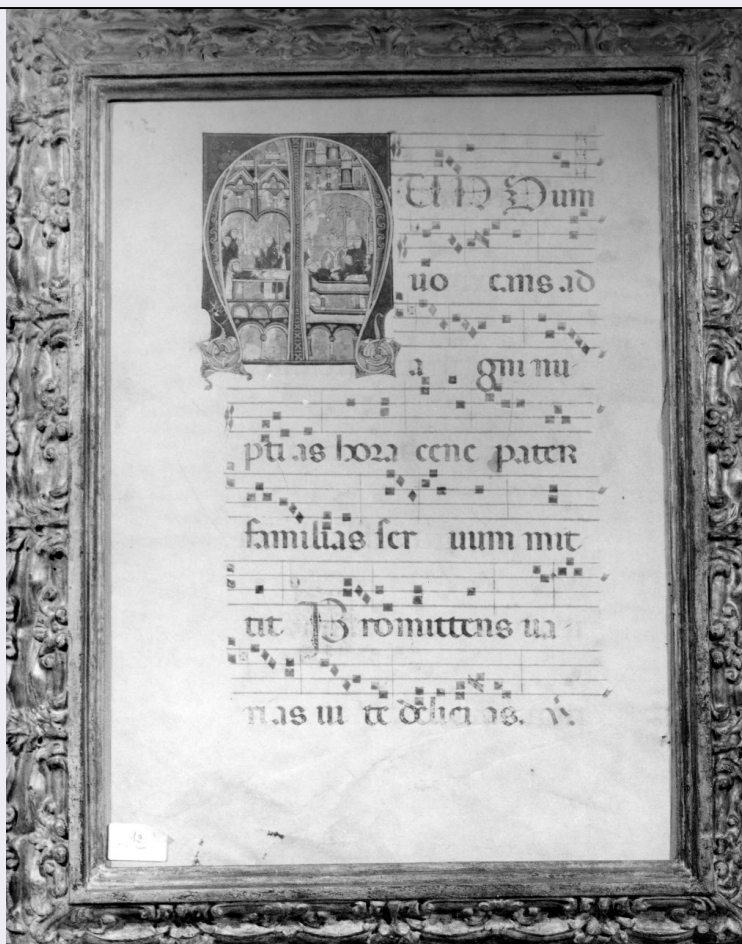 MUN Dum
uo cans ad
a gni nu
ptias hora cene pater
familias ser uum mit
tit Promittens ua
rias ui te delici as.
12